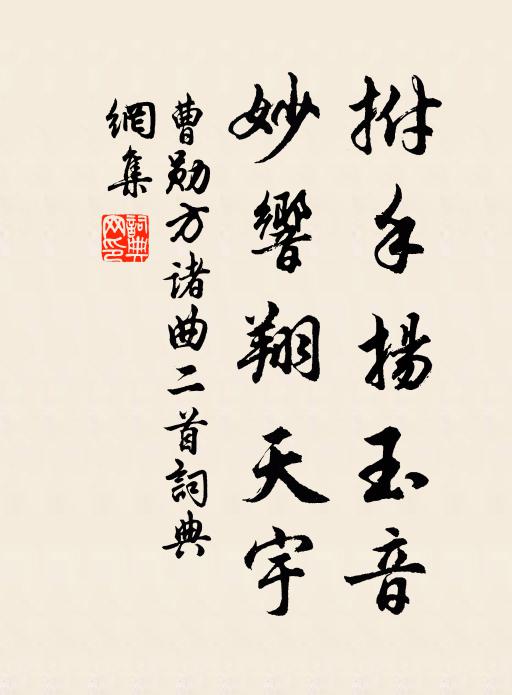 拊手揚玉音
妙響翔天宇
曹勛方诸曲二首詞典
網集
詞典網印